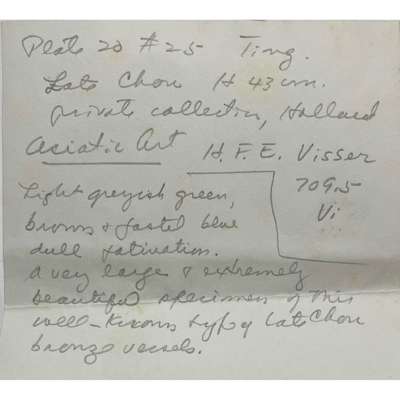 Plate 20 #25 Ting.
Late Chou H 43 cm.
private collection, Holland
Asiatic Art H. F. E. Visser
709.5
Vi
Light greyish green,
brown & pastel blue
dull patination.
A very large & extremely
beautiful specimen of this
well-known type of Late Chou
bronze vessels.